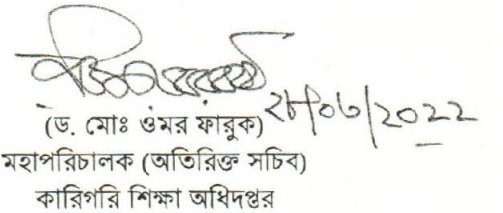 ২৮/০৬/২০২২
(ড. মোঃ ওমর ফারুক)
মহাপরিচালক (অতিরিক্ত সচিব)
কারিগরি শিক্ষা অধিদপ্তর